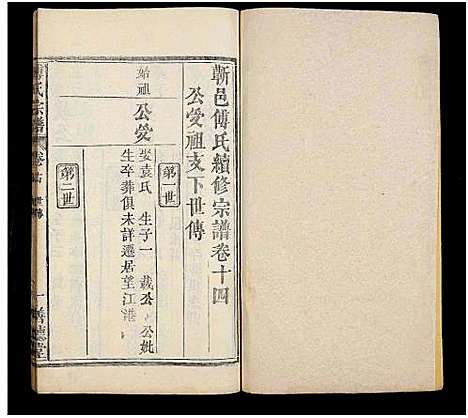 蘄邑傅氏續修宗譜卷十四
公受祖支下世傳
第一世
始祖 公受
娶袁氏 生子一 載公 公妣
生卒葬俱未詳遷居望江港
第二世
氏宗譜
卷 世傳
一